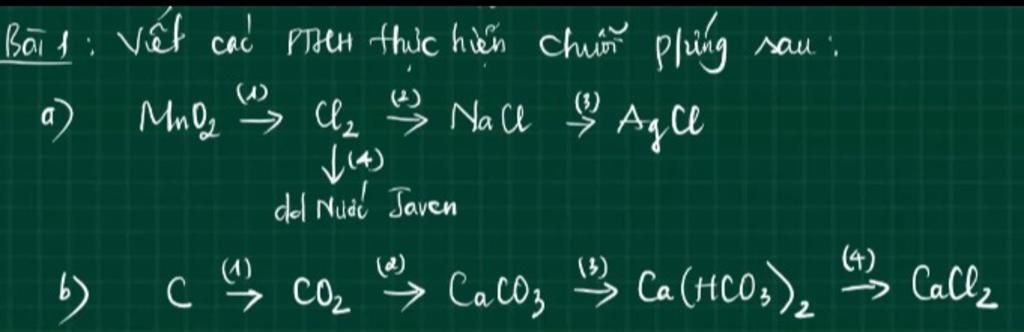 Bài 1: Viết các PTHH thực hiện chuỗi pứng sau:
a) MnO₂ (1)→ Cl₂ (2)→ NaCl (3)→ AgCl
↓(4)
dd Nước Javen
b) C (1)→ CO₂ (2)→ CaCO₃ (3)→ Ca(HCO₃)₂ (4)→ CaCl₂